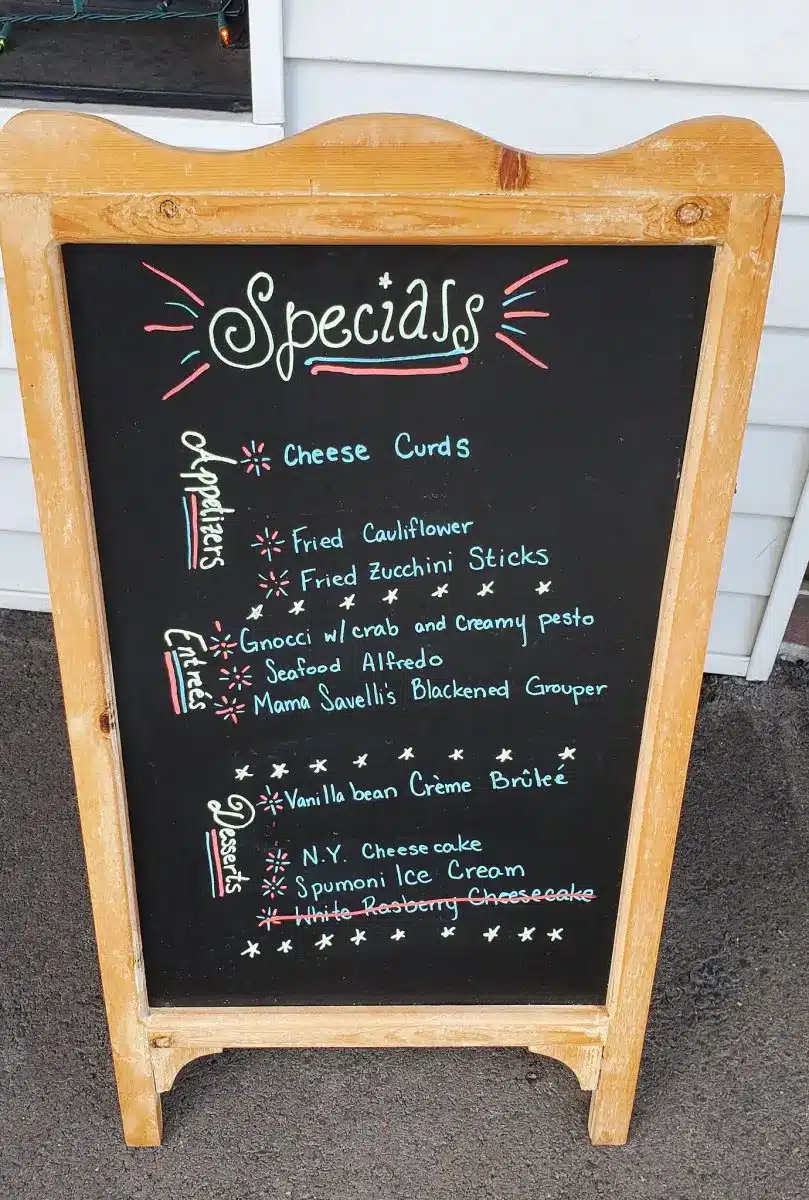 Specials
Appetizers
Cheese Curds
Fried Cauliflower
Fried Zucchini Sticks
Entreés
Gnocci w/ crab and Creamy pesto
Seafood Alfredo
Mama Savelli's Blackened Grouper
Desserts
Vanilla bean Crème Brûleé
N.Y. Cheesecake
Spumoni Ice Cream
White Rasberry Cheesecake